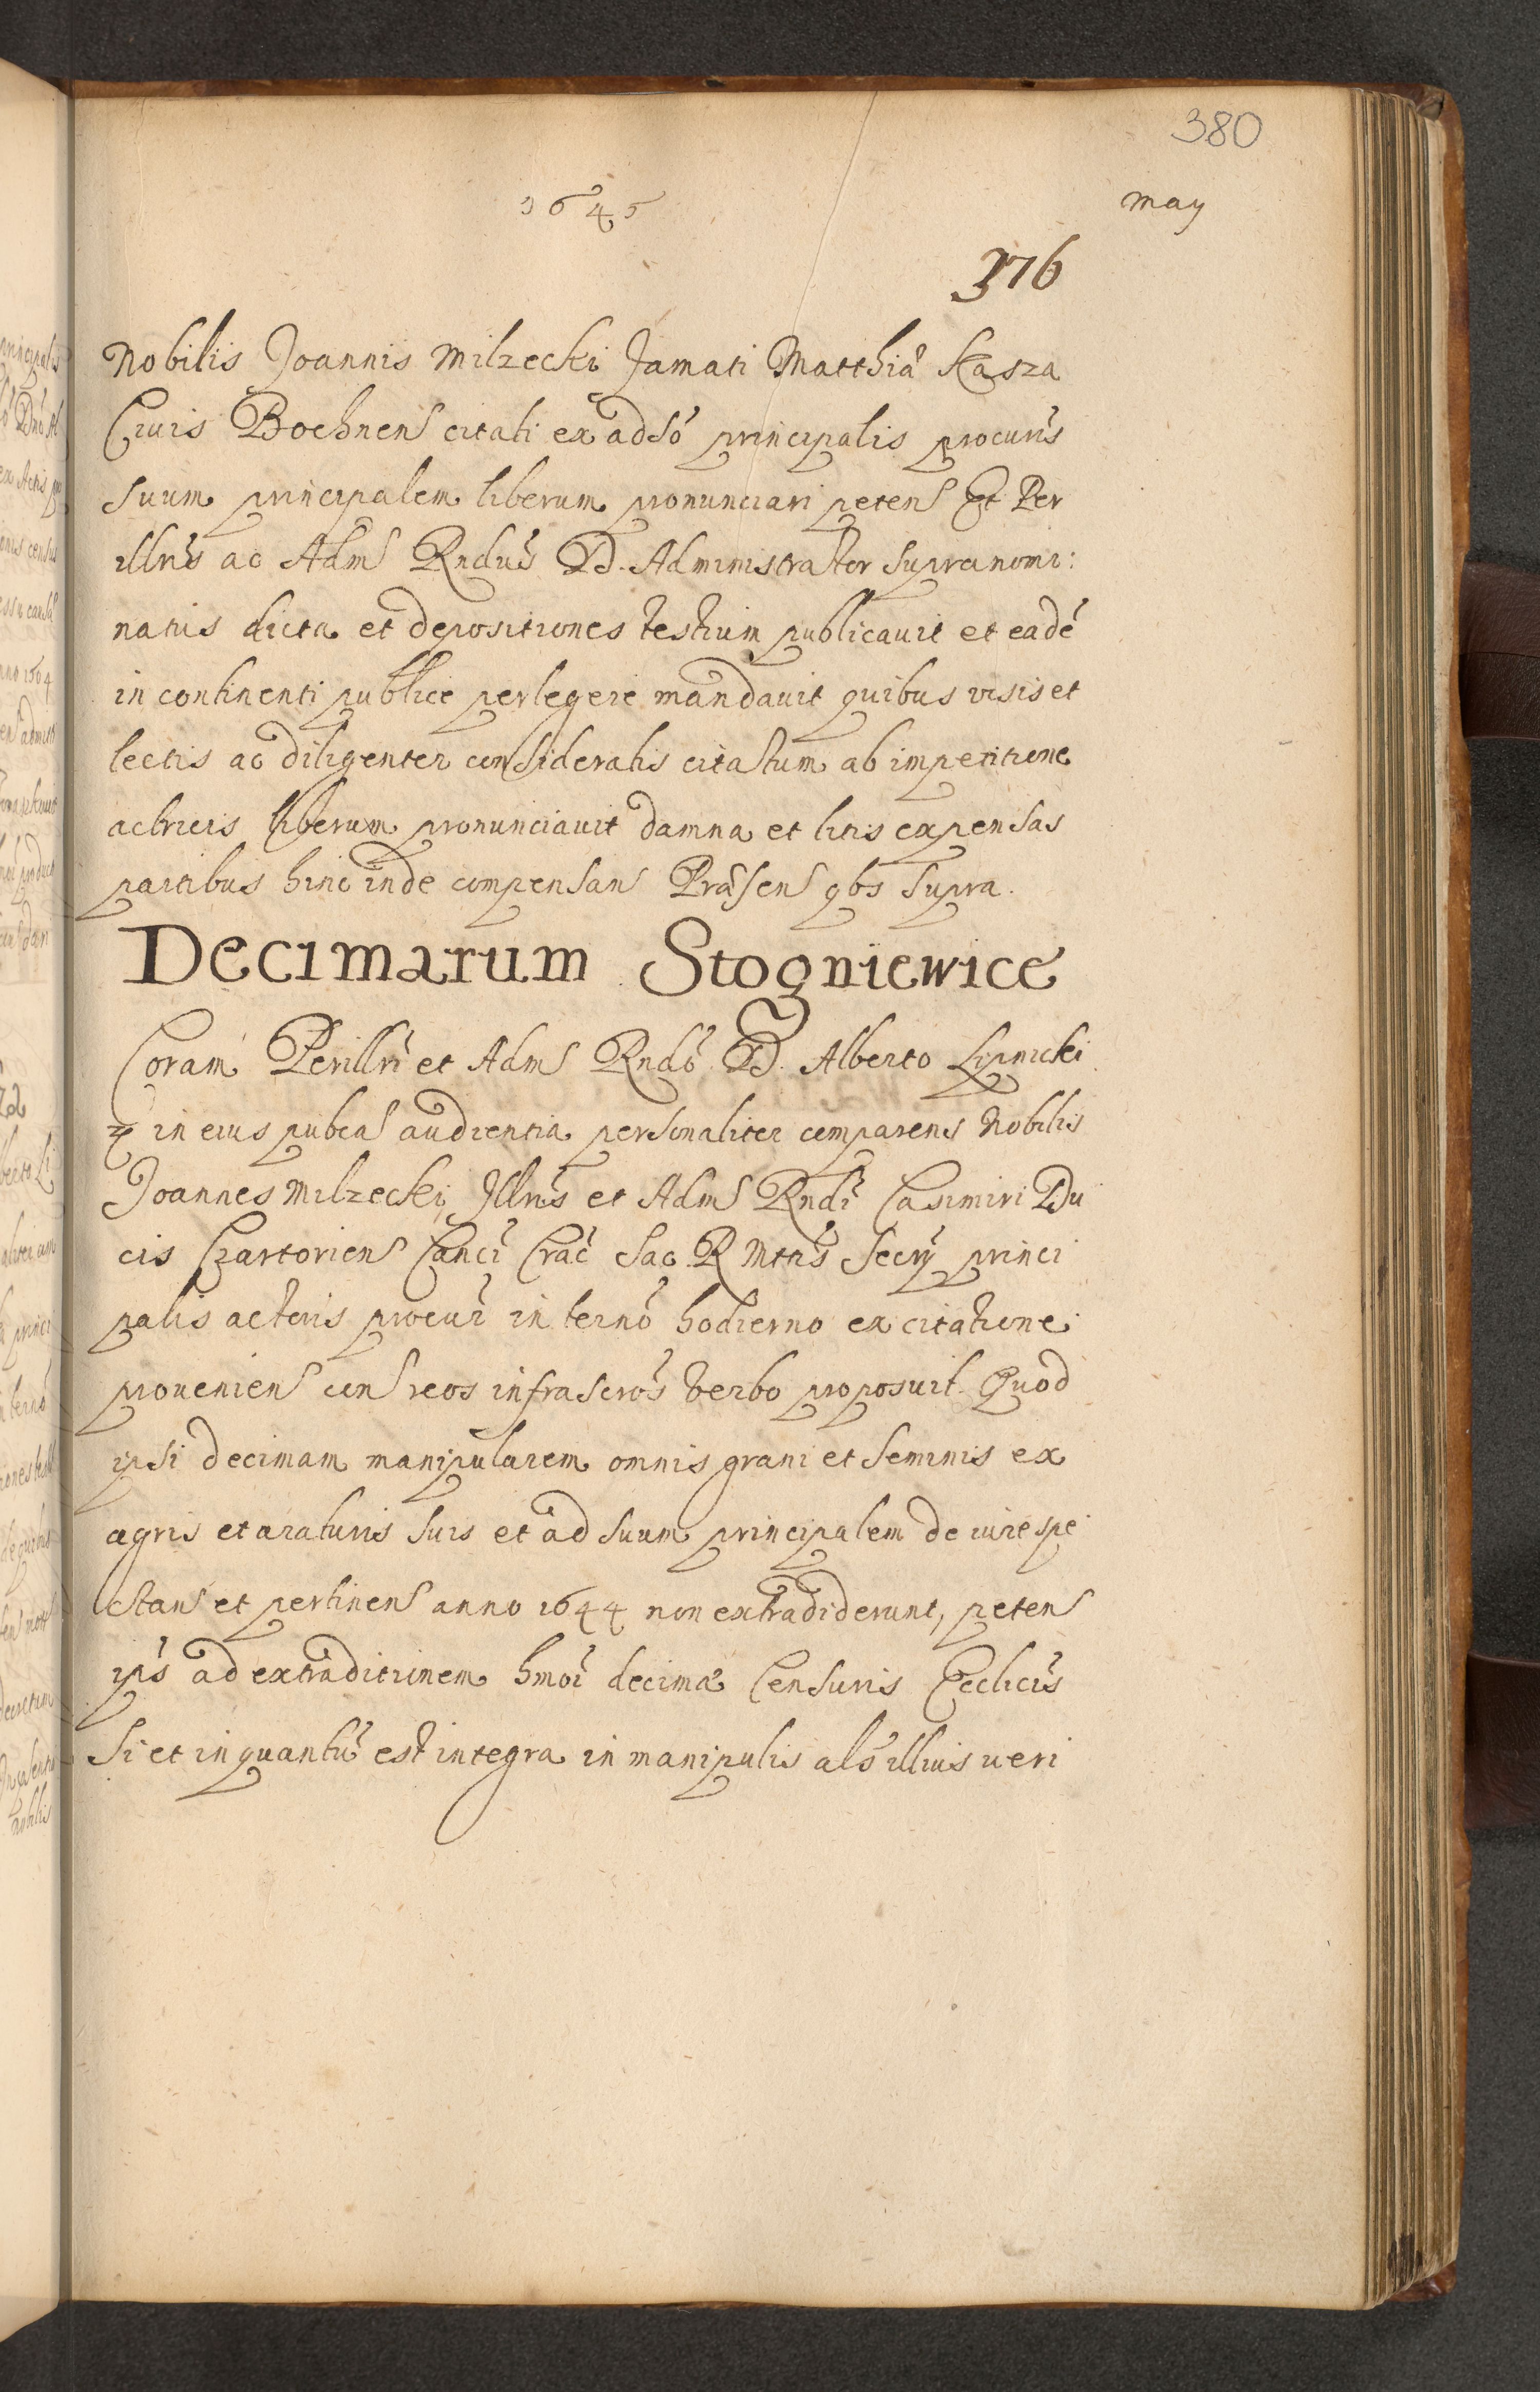 380
1645
May
376
Nobilis Joannis Milzecki Famati Matthiæ Kasza
Ciuis Bochnens citati ex adsó principalis procuris
suum principalem liberum pronunciari petens Et Per
illris ac Adms Rndus D. Administrator supranomi:
natus dicta et depositiones testium publicauit et eadē
in continenti publice perlegere mandauit quibus visis et
lectis ac diligenter consideratis citatum ab impetitione
actricis liberum pronunciauit damna et litis expensas
partibus hinc inde compensans Præsens qbs supra.
Decimarum Stogniewice
Coram Perillri et Adms Rndo D. Alberto Lipnicki
in eius pubca audientia personaliter comparens Nobilis
Joannes Milzecki Illris et Adms Rndi Casimiri Du
cis Czartoriens Canci Crac Sac R Mttis Secrij princi
palis actoris procur in termō hodierno ex citatione
proueniens cons reos infrascros verbo proposuit Quod
ipsi decimam manipularem omnis grani et seminis ex
agris et araturis suis et ad suum principalem de iure spe
ctans et pertinens anno 1644 non extradiderunt, petens
ipis ad extraditionem hmoi decimæ Censuris Eccliciis
si et in quantū est integra in manipulis als illius veri